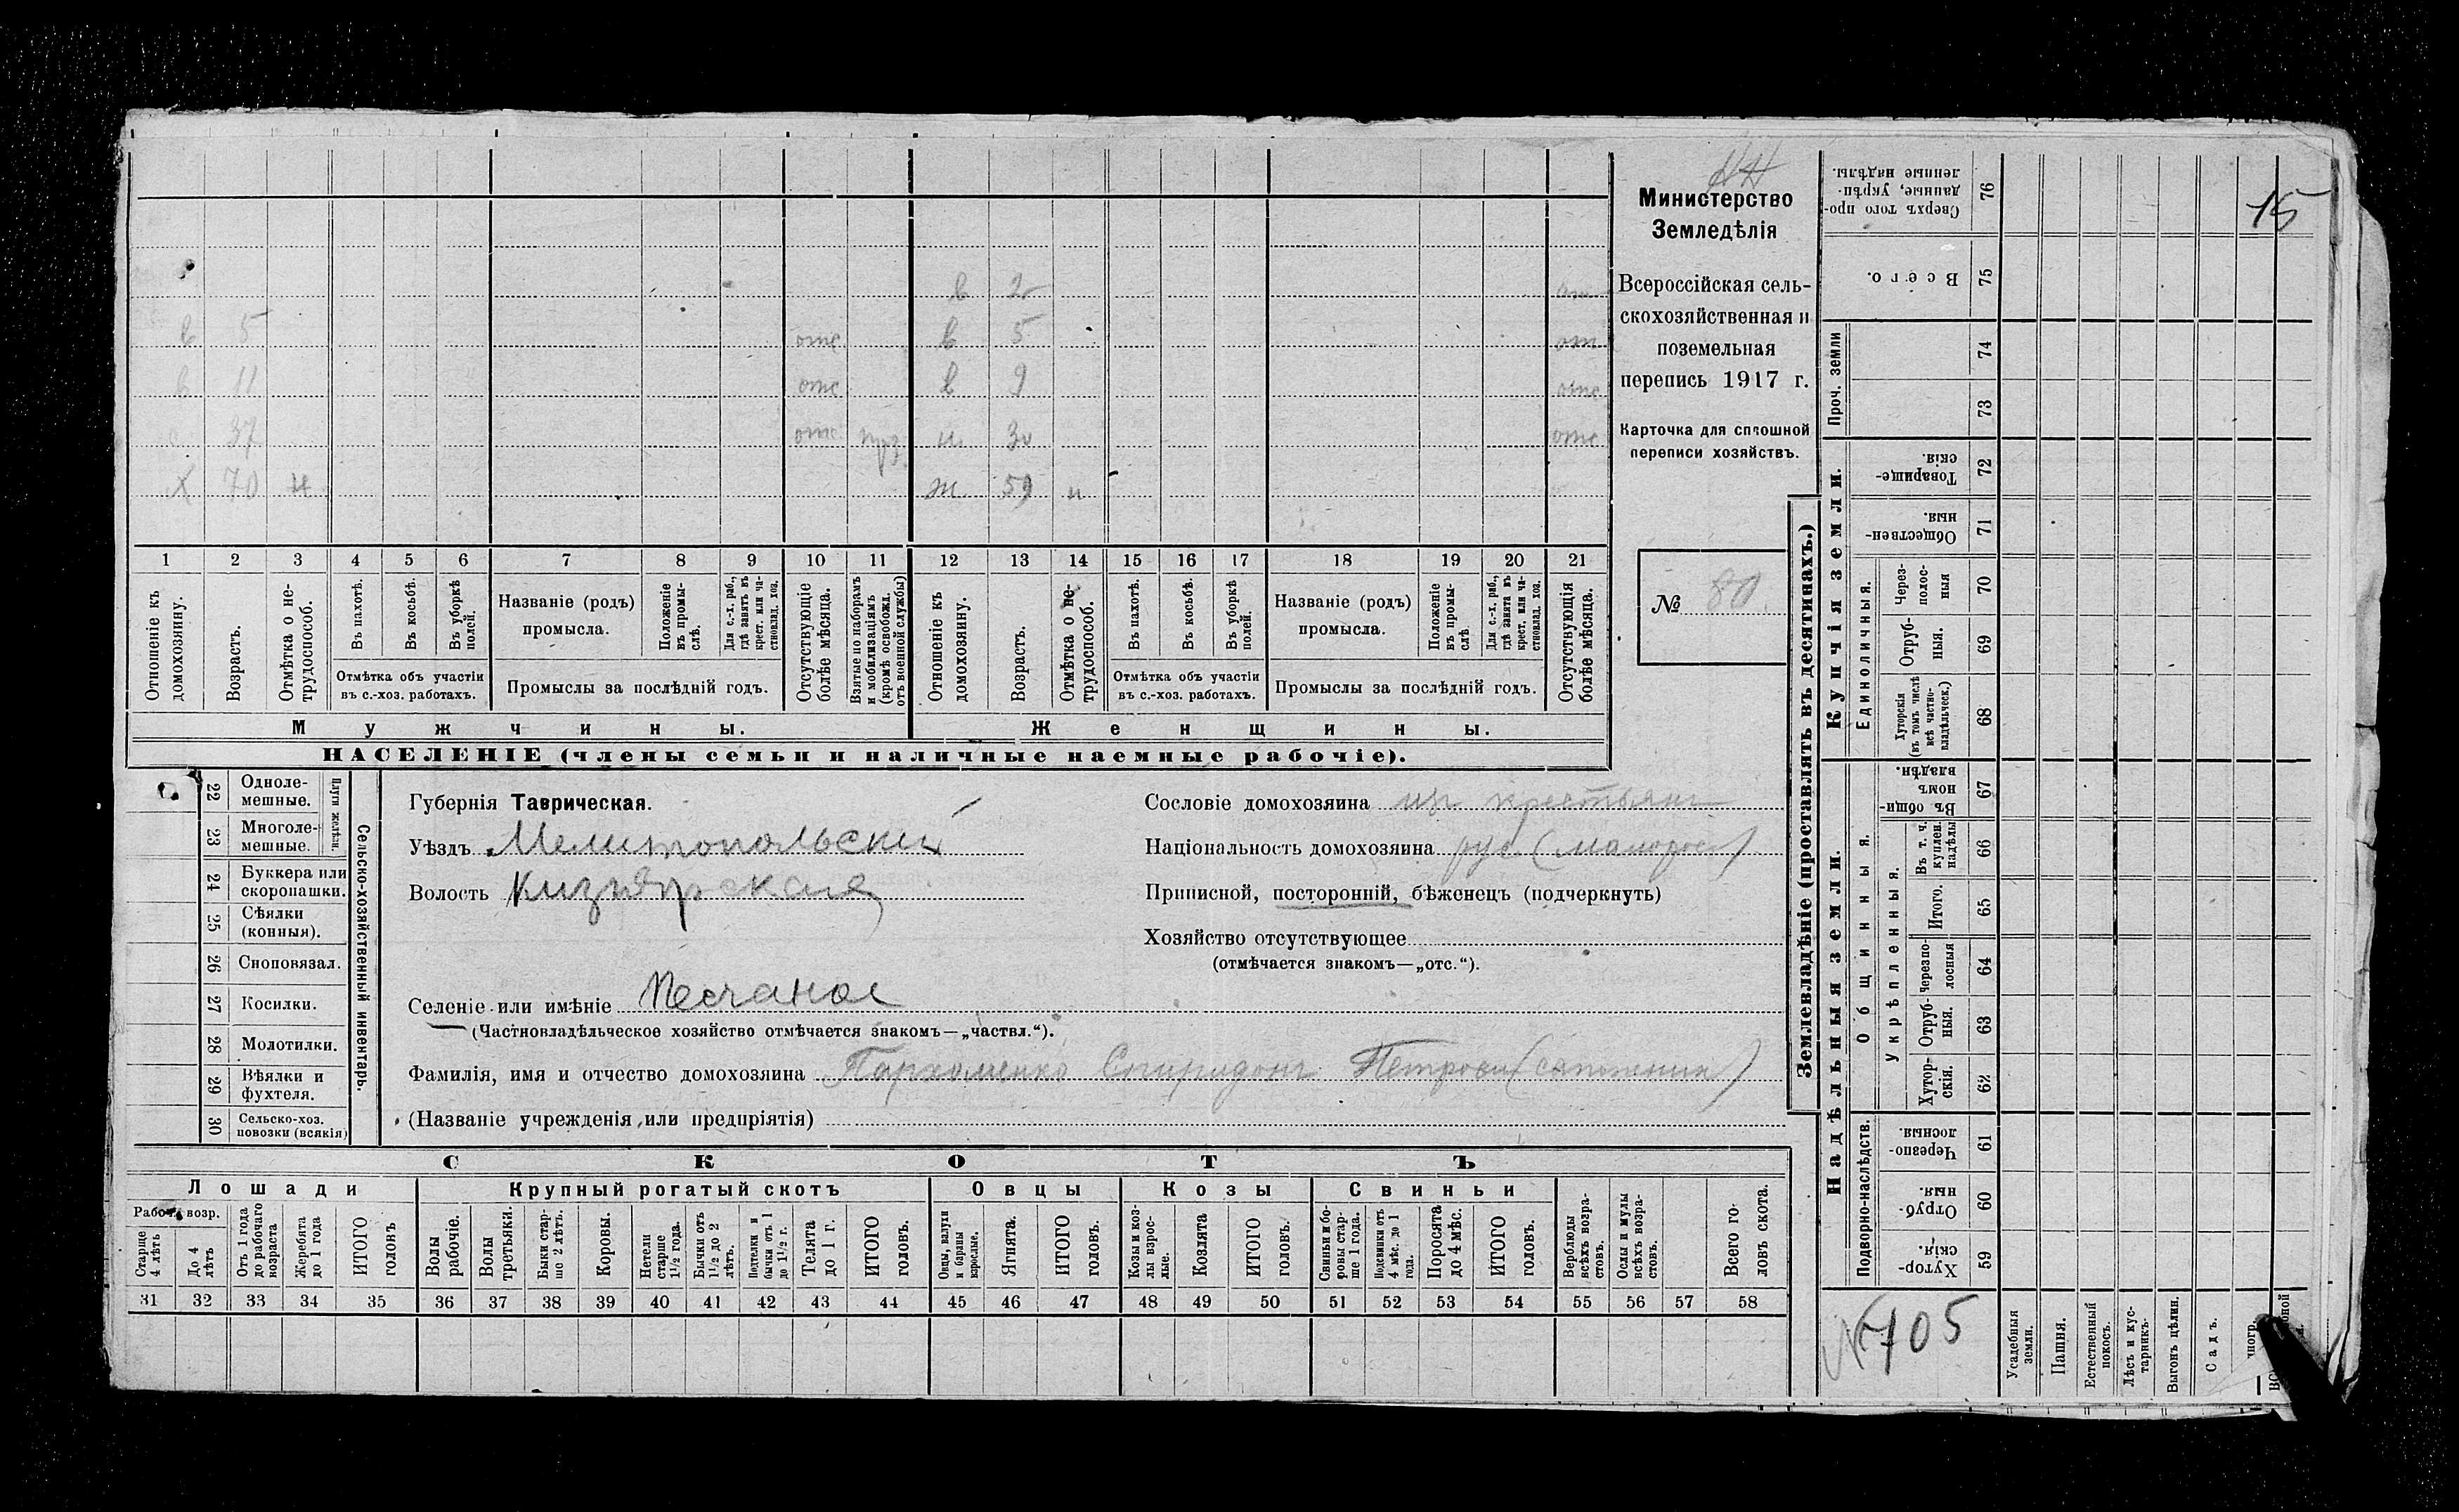 15
Министерство
Земледѣлія
Всероссійская сель-
скохозяйственная и
поземельная
перепись 1917 г.
Карточка для сплошной
переписи хозяйствъ.
№ 80
в 2
в 5 отс в 5 от
в 11 отс в 9 отс
с 37 отс н 30 отс
Х 70 н ж 59 н
1 2 3 4 5 6 7 8 9 10 11 12 13 14 15 16 17 18 19 20 21
Отношеніе къ домохозяину.
Возрастъ.
Отмѣтка о не-трудоспособ.
Въ пахотѣ.
Въ косьбѣ.
Въ уборкѣ полей.
Отмѣтка объ участіи
въ с.-хоз. работахъ.
Названіе (родъ)
промысла.
Положеніе въ промы-слѣ.
Для с.-х. раб., гдѣ занятъ въ крест. или ча-стновлад. хоз.
Промыслы за послѣдній годъ.
Отсутствующіе болѣе мѣсяца.
Взятые по наборамъ и мобилизаціямъ (кромѣ освобожд. отъ военной службы)
Отношеніе къ домохозяину.
Возрастъ.
Отмѣтка о не-трудоспособ.
Въ пахотѣ.
Въ косьбѣ.
Въ уборкѣ полей.
Отмѣтка объ участіи
въ с.-хоз. работахъ.
Названіе (родъ)
промысла.
Положеніе въ промы-слѣ
Для с.-х. раб., гдѣ занята въ крест. или ча-стновлад. хоз.
Промыслы за послѣдній годъ.
Отсутствующія болѣе мѣсяца.
Мужчины. Женщины.
НАСЕЛЕНІЕ (члены семьи и наличные наемные рабочіе).
22 Одноле-мешные.
23 Многоле-мешные.
Плуги желѣзн.
24 Буккера или скоропашки.
25 Сѣялки (конныя).
26 Сноповязал.
27 Косилки.
28 Молотилки.
29 Вѣялки и фухтеля.
30 Сельско-хоз. повозки (всякія)
Сельско-хозяйственный инвентарь.
Губернія Таврическая.
Уѣздъ Мелитопольский
Волость Кизіярская
Селеніе или имѣніе Песчаное
(Частновладѣльческое хозяйство отмѣчается знакомъ—„частвл.“).
Сословіе домохозяина из крестьян
Національность домохозяина рус. (малорос)
Приписной, посторонній, бѣженецъ (подчеркнуть)
Хозяйство отсутствующее
(отмѣчается знакомъ—„отс.“).
Фамилія, имя и отчество домохозяина Пархоменко Спиридонъ Петрови (сапожник)
(Названіе учрежденія или предпріятія)
СКОТЪ
Лошади Крупный рогатый скотъ Овцы Козы Свиньи
Рабоч. возр.
Старше 4 лѣтъ
До 4 лѣтъ
Отъ 1 года до рабочаго возраста
Жеребята до 1 года
ИТОГО головъ
Волы рабочіе.
Волы третьяки.
Быки стар-ше 2 лѣтъ.
Коровы.
Нетели старше 1½ года.
Бычки отъ 1½ до 2 лѣтъ.
Подтелки и бычки отъ 1 до 1½ г.
Телята до 1 г.
ИТОГО головъ.
Овцы, валухи и бараны взрослые.
Ягнята.
ИТОГО головъ.
Козы и коз-лы взрос-лые.
Козлята
ИТОГО головъ.
Свиньи и бо-ровы стар-ше 1 года.
Подсвинки отъ 4 мѣс. до 1 года.
Поросята до 4 мѣс.
ИТОГО головъ.
Верблюды всѣхъ возра-стовъ.
Ослы и мулы всѣхъ возра-стовъ.
Всего го-ловъ скота.
31 32 33 34 35 36 37 38 39 40 41 42 43 44 45 46 47 48 49 50 51 52 53 54 55 56 57 58
Землевладѣніе (проставлять въ десятинахъ.)
Надѣльныя земли. Купчія земли. Проч. земли
Подворно-наслѣдств.
Общинныя.
Укрѣпленныя.
Единоличныя.
Сверхъ того про-данные, укрѣп-ленные надѣлы. 76
Всего. 75
74
73
Товарище-скія. 72
Обществен-ныя. 71
Через-полос-ныя 70
Отруб-ныя. 69
Хуторскія (въ томъ числѣ всѣ частно-владѣльческ.) 68
Въ общин-номъ владѣн. 67
Въ т. ч. куплен. надѣлы 66
Итого. 65
Черезпо-лосныя 64
Отруб-ныя. 63
Хутор-скія. 62
Черезпо-лосныя. 61
Отруб-ныя. 60
Хутор-скія. 59
№705
Усадебныя земли.
Пашня.
Естественный покосъ.
Лѣсъ и кус-тарникъ.
Выгонъ цѣлин.
Садъ.